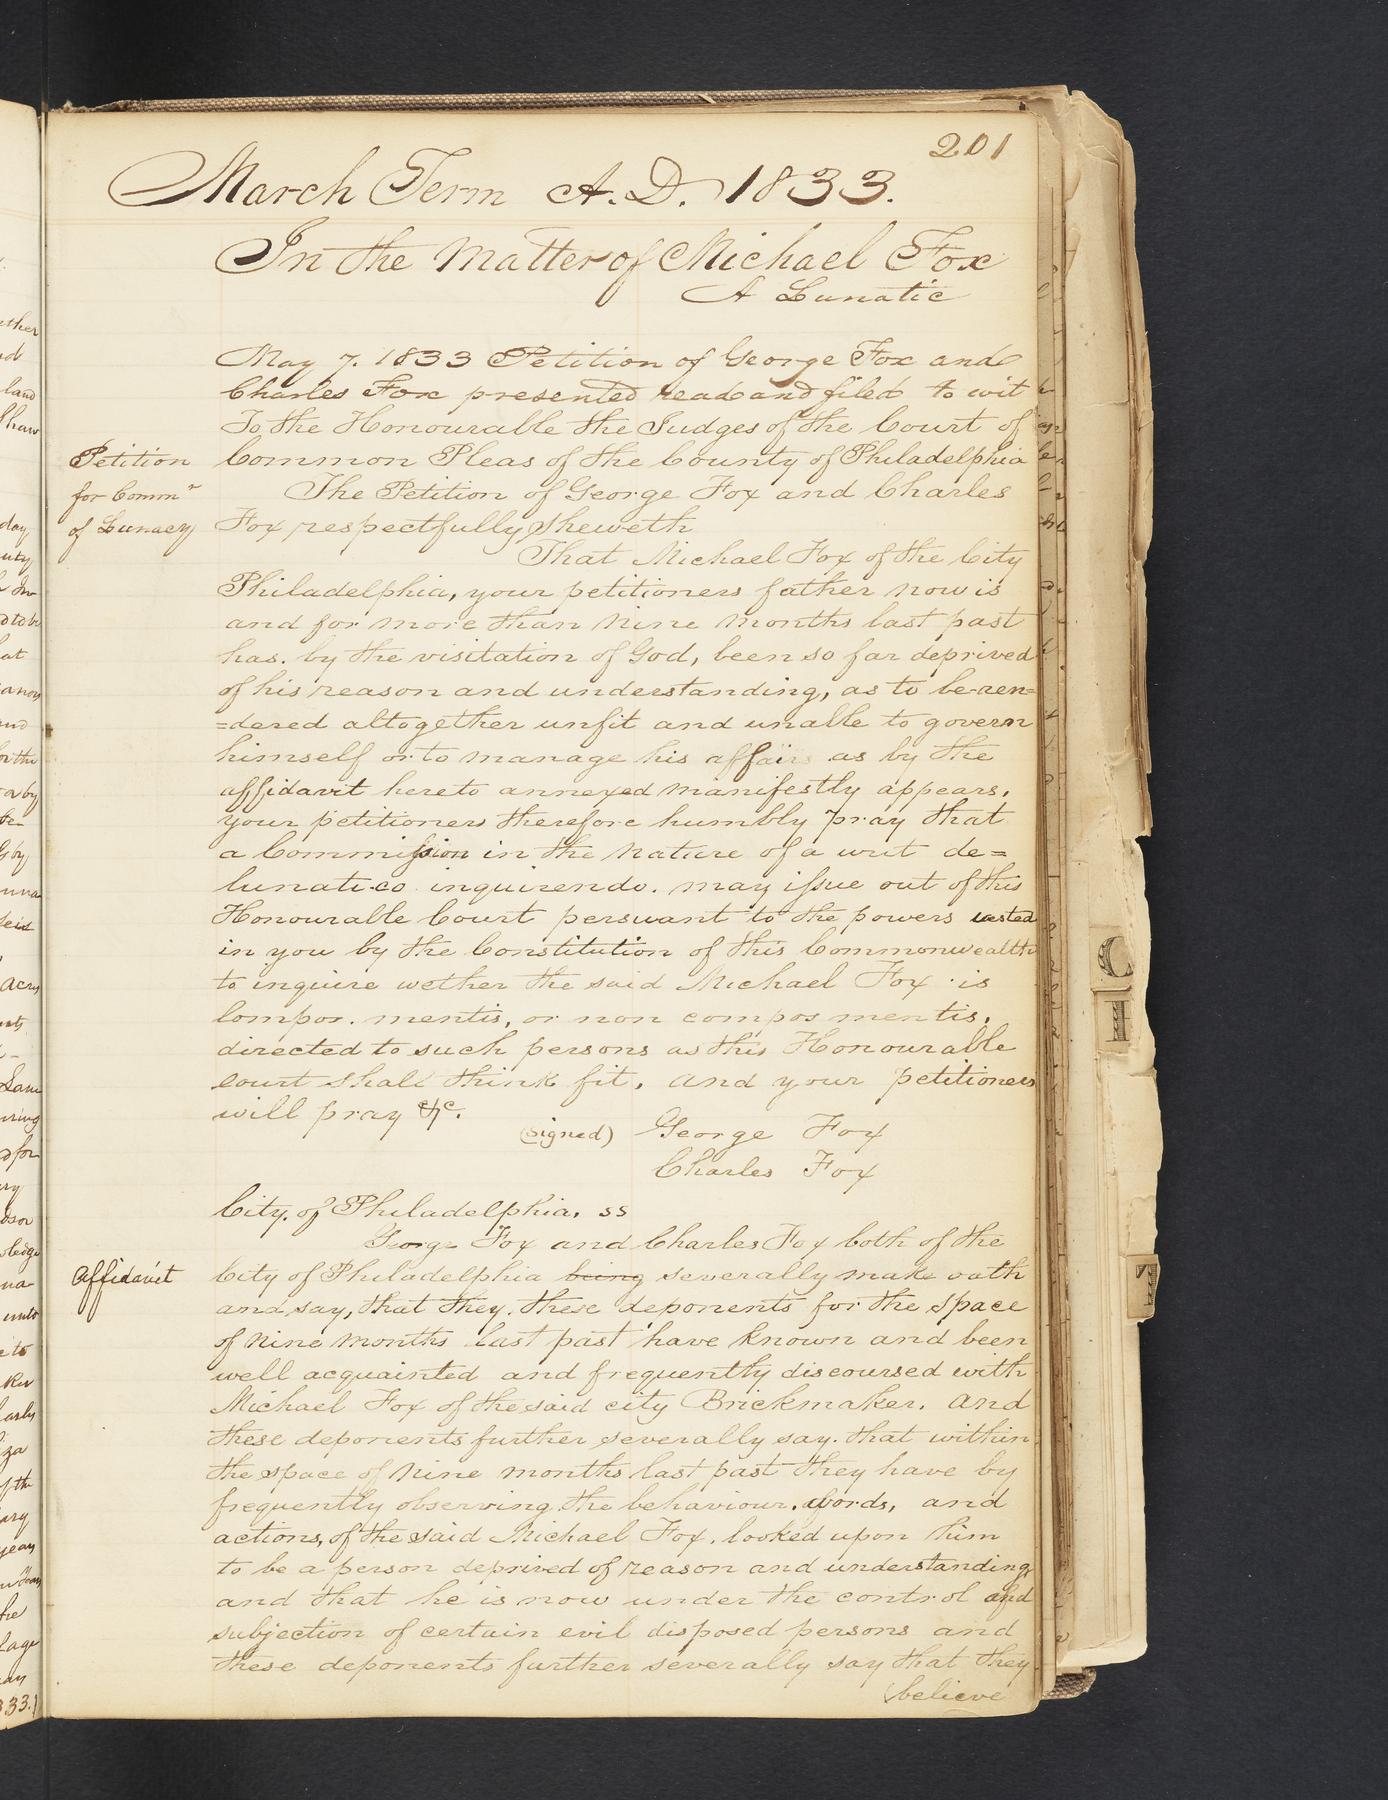 201
March Term A.D. 1833.
In the Matter of Michael Fox
A Lunatic
May 7. 1833 Petition of George Fox and
Charles Fox presented read and filed to wit
To the Honourable the Judges of the Court of
Petition
Common Pleas of the County of Philadelphia
for Commn
The Petition of George Fox and Charles
of Lunacy
Fox respectfully sheweth
That Michael Fox of the City
Philadelphia, your petitioners father now is
and for more than nine months last past
has. by the visitation of God, been so far deprived
of his reason and understanding, as to be ren=
=dered altogether unfit and unable to govern
himself or to manage his affairs as by the
affidavit hereto annexed manifestly appears,
your petitioners therefore humbly pray that
a Commission in the nature of a writ de=
lunatico inquirendo. may issue out of this
Honourable Court persuant to the powers vested
in you by the Constitution of this Commonwealth
to inquire wether the said Michael Fox is
Compos. mentis, or non compos mentis,
directed to such persons as this Honourable
court shall think fit, and your petitioners
will pray &c.
(signed) George Fox
Charles Fox
City. of Philadelphia, ss
George Fox and Charles Fox both of the
affidavit
City of Philadelphia being severally make oath
and say, that they. these deponents for the space
of nine months last past have known and been
well acquainted and frequently discoursed with
Michael Fox of the said city Brickmaker. and
these deponents further severally say. that within
the space of nine months last past they have by
frequently observing the behaviour, words, and
actions, of the said Michael Fox, looked upon him
to be a person deprived of reason and understanding
and that he is now under the control and
subjection of certain evil disposed persons and
these deponents further severally say that they
believe